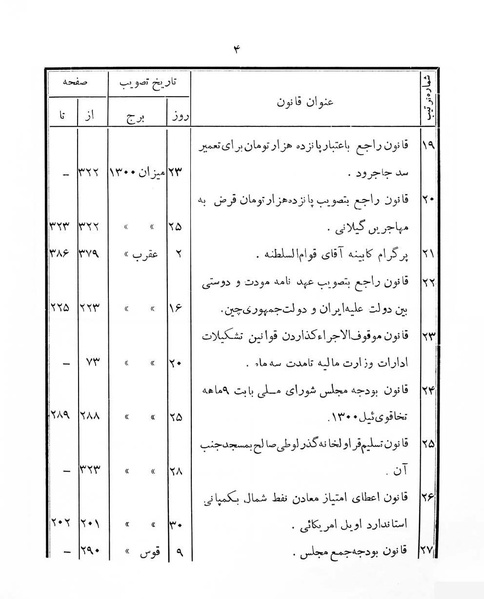 ۴
شماره ترتیب
عنوان قانون
تاریخ تصویب
صفحه
روز
برج
از
تا
۱۹ قانون راجع باعتبار پانزده هزار تومان برای تعمیر
سد جاجرود . ۲۳ میزان ۱۳۰۰ ۳۲۲ –
۲۰ قانون راجع بتصویب پانزده هزار تومان قرض به
مهاجرین گیلانی . ۲۵ » » ۳۲۲ ۳۲۳
۲۱ پرگرام کابینه آقای قوام السلطنه . ۲ عقرب » ۳۷۹ ۳۸۶
۲۲ قانون راجع بتصویب عهد نامه مودت و دوستی
بین دولت علیه ایران و دولت جمهوری چین. ۱۶ » » ۲۲۳ ۲۲۵
۲۳ قانون موقوف الاجراء گذاردن قوانین تشکیلات
ادارات وزارت مالیه تا مدت سه ماه . ۲۰ » » ۷۳ –
۲۴ قانون بودجه مجلس شورای ملی بابت ۹ ماهه
تخاقوی ئیل ۱۳۰۰. ۲۵ » » ۲۸۸ ۲۸۹
۲۵ قانون تسلیم قراولخانه گذر لوطی صالح بمسجد جنب
آن . ۲۸ » » ۳۲۳ –
۲۶ قانون اعطای امتیاز معادن نفط شمال بکمپانی
استاندارد اویل امریکائی . ۳۰ » » ۲۰۱ ۲۰۲
۲۷ قانون بودجه جمع مجلس . ۹ قوس » ۲۹۰ –